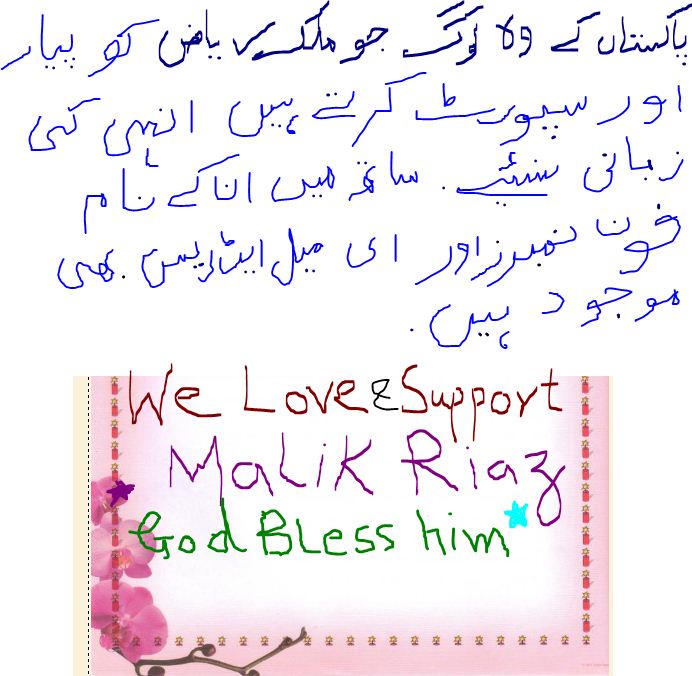 پاکستان کے وہ لوگ جو ملک ریاض کو پیار
اور سپورٹ کرتے ہیں انہی کی
زبانی سنئیے. ساتھ میں ان کے نام
فون نمبرز اور ای میل ایڈریس بھی
موجود ہیں.
We Love & Support
Malik Riaz
God Bless him